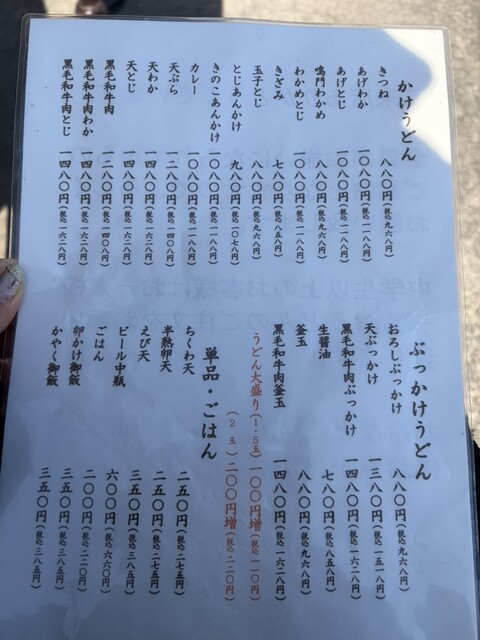 かけうどん
きつね 八八〇円(税込九六八円)
あげわか 一〇八〇円(税込一一八八円)
あげとじ 一〇八〇円(税込一一八八円)
鳴門わかめ 八八〇円(税込九六八円)
わかめとじ 一〇八〇円(税込一一八八円)
きざみ 七八〇円(税込八五八円)
玉子とじ 八八〇円(税込九六八円)
とじあんかけ 九八〇円(税込一〇七八円)
きのこあんかけ 一〇八〇円(税込一一八八円)
カレー 一〇八〇円(税込一一八八円)
天ぷら 一二八〇円(税込一四〇八円)
天わか 一四八〇円(税込一六二八円)
天とじ 一四八〇円(税込一六二八円)
黒毛和牛肉 一二八〇円(税込一四〇八円)
黒毛和牛肉わか 一四八〇円(税込一六二八円)
黒毛和牛肉とじ 一四八〇円(税込一六二八円)
ぶっかけうどん
おろしぶっかけ 八八〇円(税込九六八円)
天ぶっかけ 一三八〇円(税込一五一八円)
黒毛和牛肉ぶっかけ 一四八〇円(税込一六二八円)
生醤油 七八〇円(税込八五八円)
釜玉 八八〇円(税込九六八円)
黒毛和牛肉釜玉 一四八〇円(税込一六二八円)
うどん大盛り(1.5玉)一〇〇円増(税込一一〇円)
(2玉)二〇〇円増(税込二二〇円)
単品・ごはん
ちくわ天 二五〇円(税込二七五円)
半熟卵天 二五〇円(税込二七五円)
えび天 三五〇円(税込三八五円)
ビール中瓶 六〇〇円(税込六六〇円)
ごはん 二〇〇円(税込二二〇円)
卵かけ御飯 三五〇円(税込三八五円)
かやく御飯 三五〇円(税込三八五円)